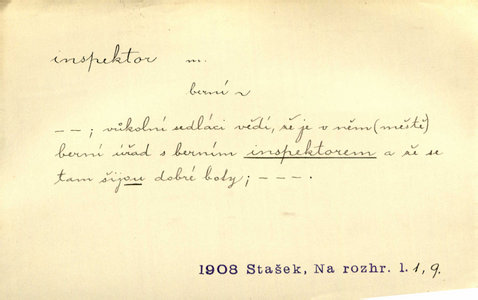 inspektor m.
berní ~
– – ; vůkolní sedláci vědí, že je v něm (městě)
berní úřad s berním inspektorem a že se
tam šijou dobré boty; – – – .
1908 Stašek, Na rozhr. 1. 1, 9.